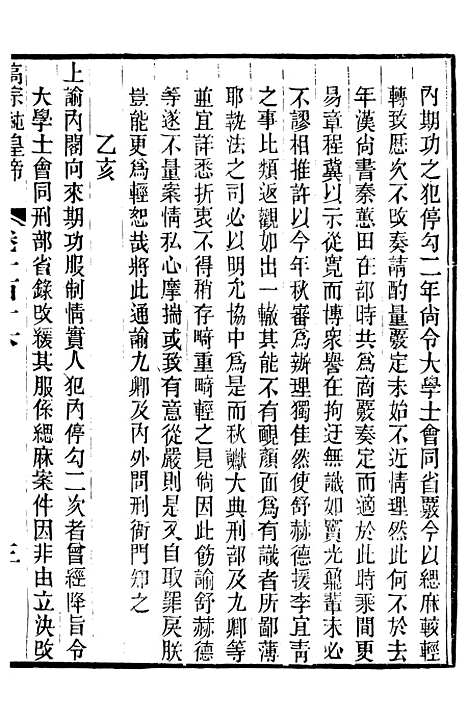 內期功之犯停勾二年尚令大學士會同省覈今以緦麻較輕
轉致歷次不改奏請酌量覈定未始不近情理然此何不於去
年漢尚書秦蕙田在部時共爲商覈奏定而適於此時乘間更
易章程冀以示從寬而博衆譽在拘迂無識如竇光鼐輩未必
不謬相推許以今年秋審爲辦理獨佳然使舒赫德援李宜青
之事比類返觀如出一轍其能不有靦顏面爲識者所鄙薄
耶執法之司以明允協中爲貴而秋讞大典刑部及九卿等
並宜詳悉折衷不得稍存畸重畸輕之見倘因此飭諭舒赫德
等遂不量案情私心摩揣或致有意從嚴則是又自取罪戾朕
豈能更爲輕恕哉將此通諭九卿及內外問刑衙門知之
乙亥
上諭內閣向來期功服制情實人犯內停勾二次者曾經降旨令
大學士會同刑部省錄改緩其服係緦麻案件因非由立決改
高宗純皇帝 卷一百十六 三